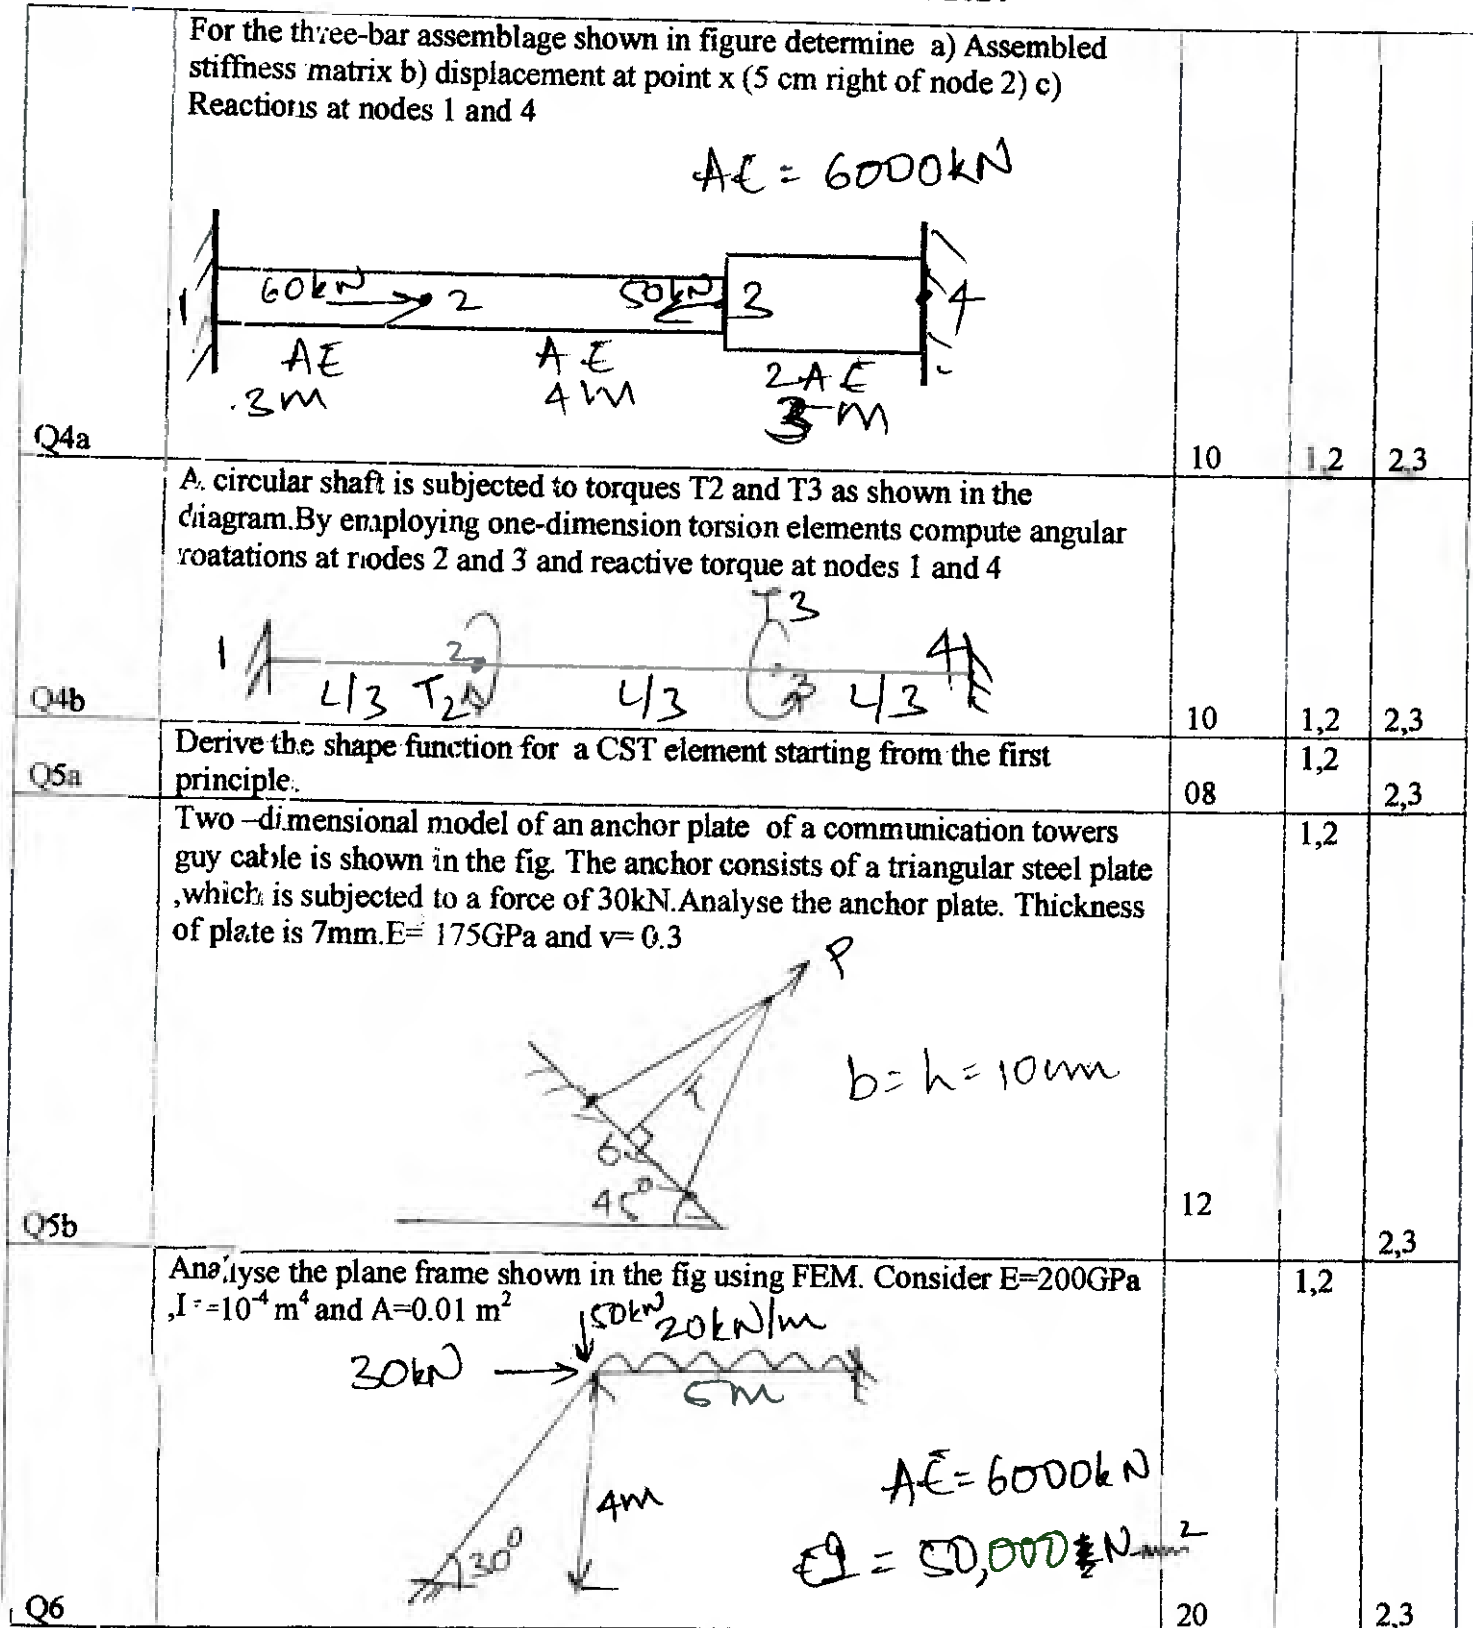 For the three-bar assemblage shown in figure determine a) Assembled
stiffness matrix b) displacement at point x (5 cm right of node 2) c)
Reactions at nodes 1 and 4
AE = 6000kN
1 60kN 2 50kN 3 4
AE AE 2AE
3m 4m 3m
Q4a 10 1,2 2,3
A circular shaft is subjected to torques T2 and T3 as shown in the
diagram.By employing one-dimension torsion elements compute angular
roatations at nodes 2 and 3 and reactive torque at nodes 1 and 4
T3
1 2 3 4
L/3 T2 L/3 L/3
Q4b 10 1,2 2,3
Derive the shape function for a CST element starting from the first
principle.
Q5a 08 1,2 2,3
Two –dimensional model of an anchor plate of a communication towers
guy cable is shown in the fig. The anchor consists of a triangular steel plate
,which is subjected to a force of 30kN.Analyse the anchor plate. Thickness
of plate is 7mm.E= 175GPa and v= 0.3
1,2
P
b = h = 10cm
h
b
45°
Q5b 12 2,3
Analyse the plane frame shown in the fig using FEM. Consider E=200GPa
,I =10⁻⁴ m⁴ and A=0.01 m²
1,2
50kN 20kN/m
30kN
5m
4m
AE = 6000kN
30°
EI = 50,000
Q6 20 2,3